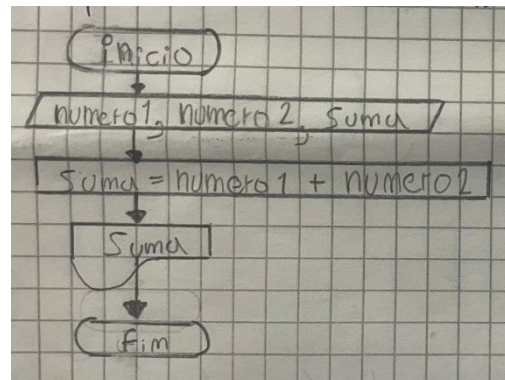 inicio
numero1, numero2, suma
suma = numero1 + numero2
suma
fim